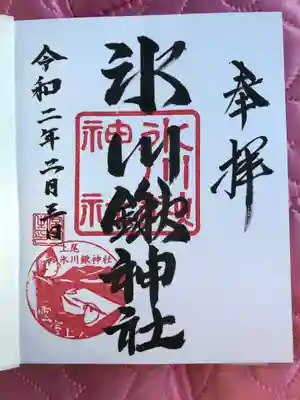 奉拝
氷川鍬神社
氷川鍬
神社
令和二年二月三日
上尾
氷川鍬神社
雲室上人